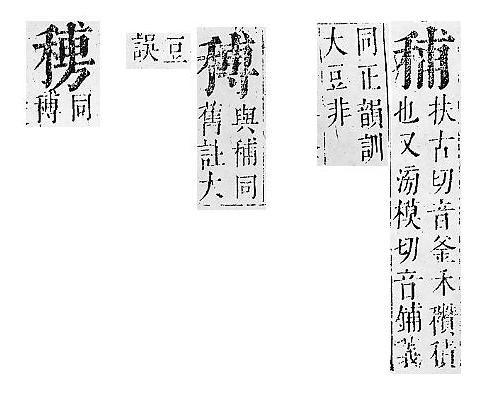 䅵
扶古切音釜禾穳積
也又滂模切音鋪義
同正韻訓
大豆非
䅭
與䅵同
舊註大
豆
誤
同